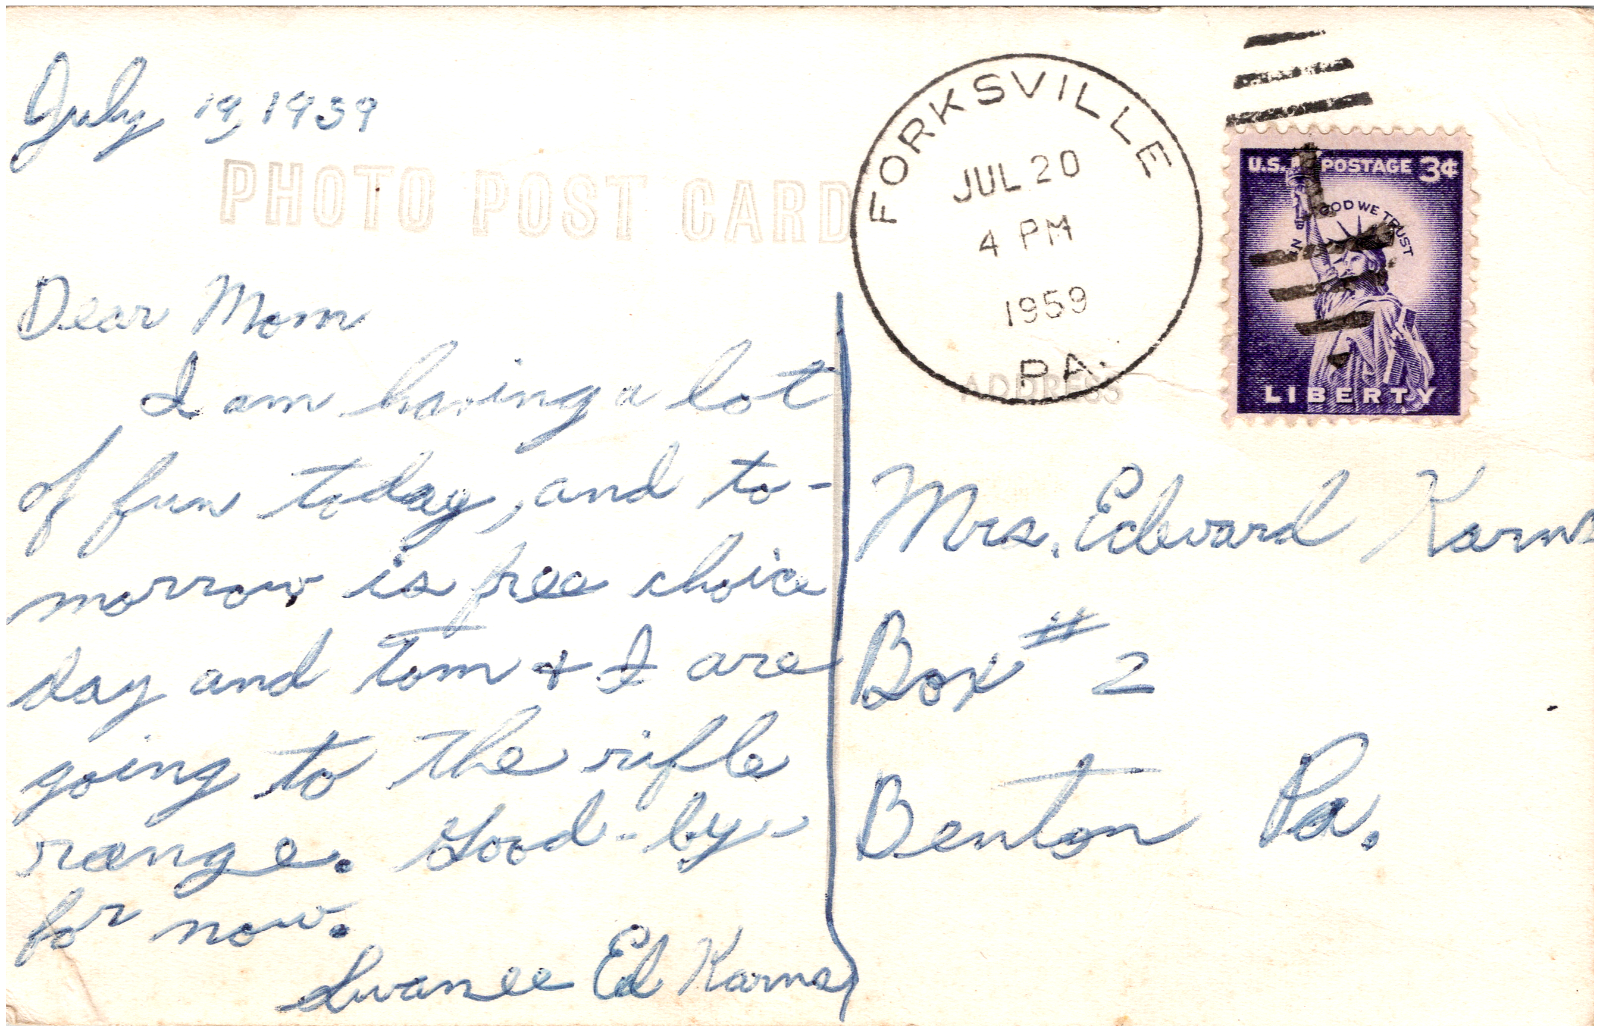 July 19, 1959
PHOTO POST CARD
Dear Mom
I am having a lot
of fun today, and to-
morrow is free choice
day and Tom & I are
going to the rifle
range. Good-by-
for now.
Swanee Ed Karns
FORKSVILLE
JUL 20
4 PM
1959
PA.
U.S. POSTAGE 3¢
IN GOD WE TRUST
LIBERTY
ADDRESS
Mrs. Edward Karns
Box # 2
Benton Pa.